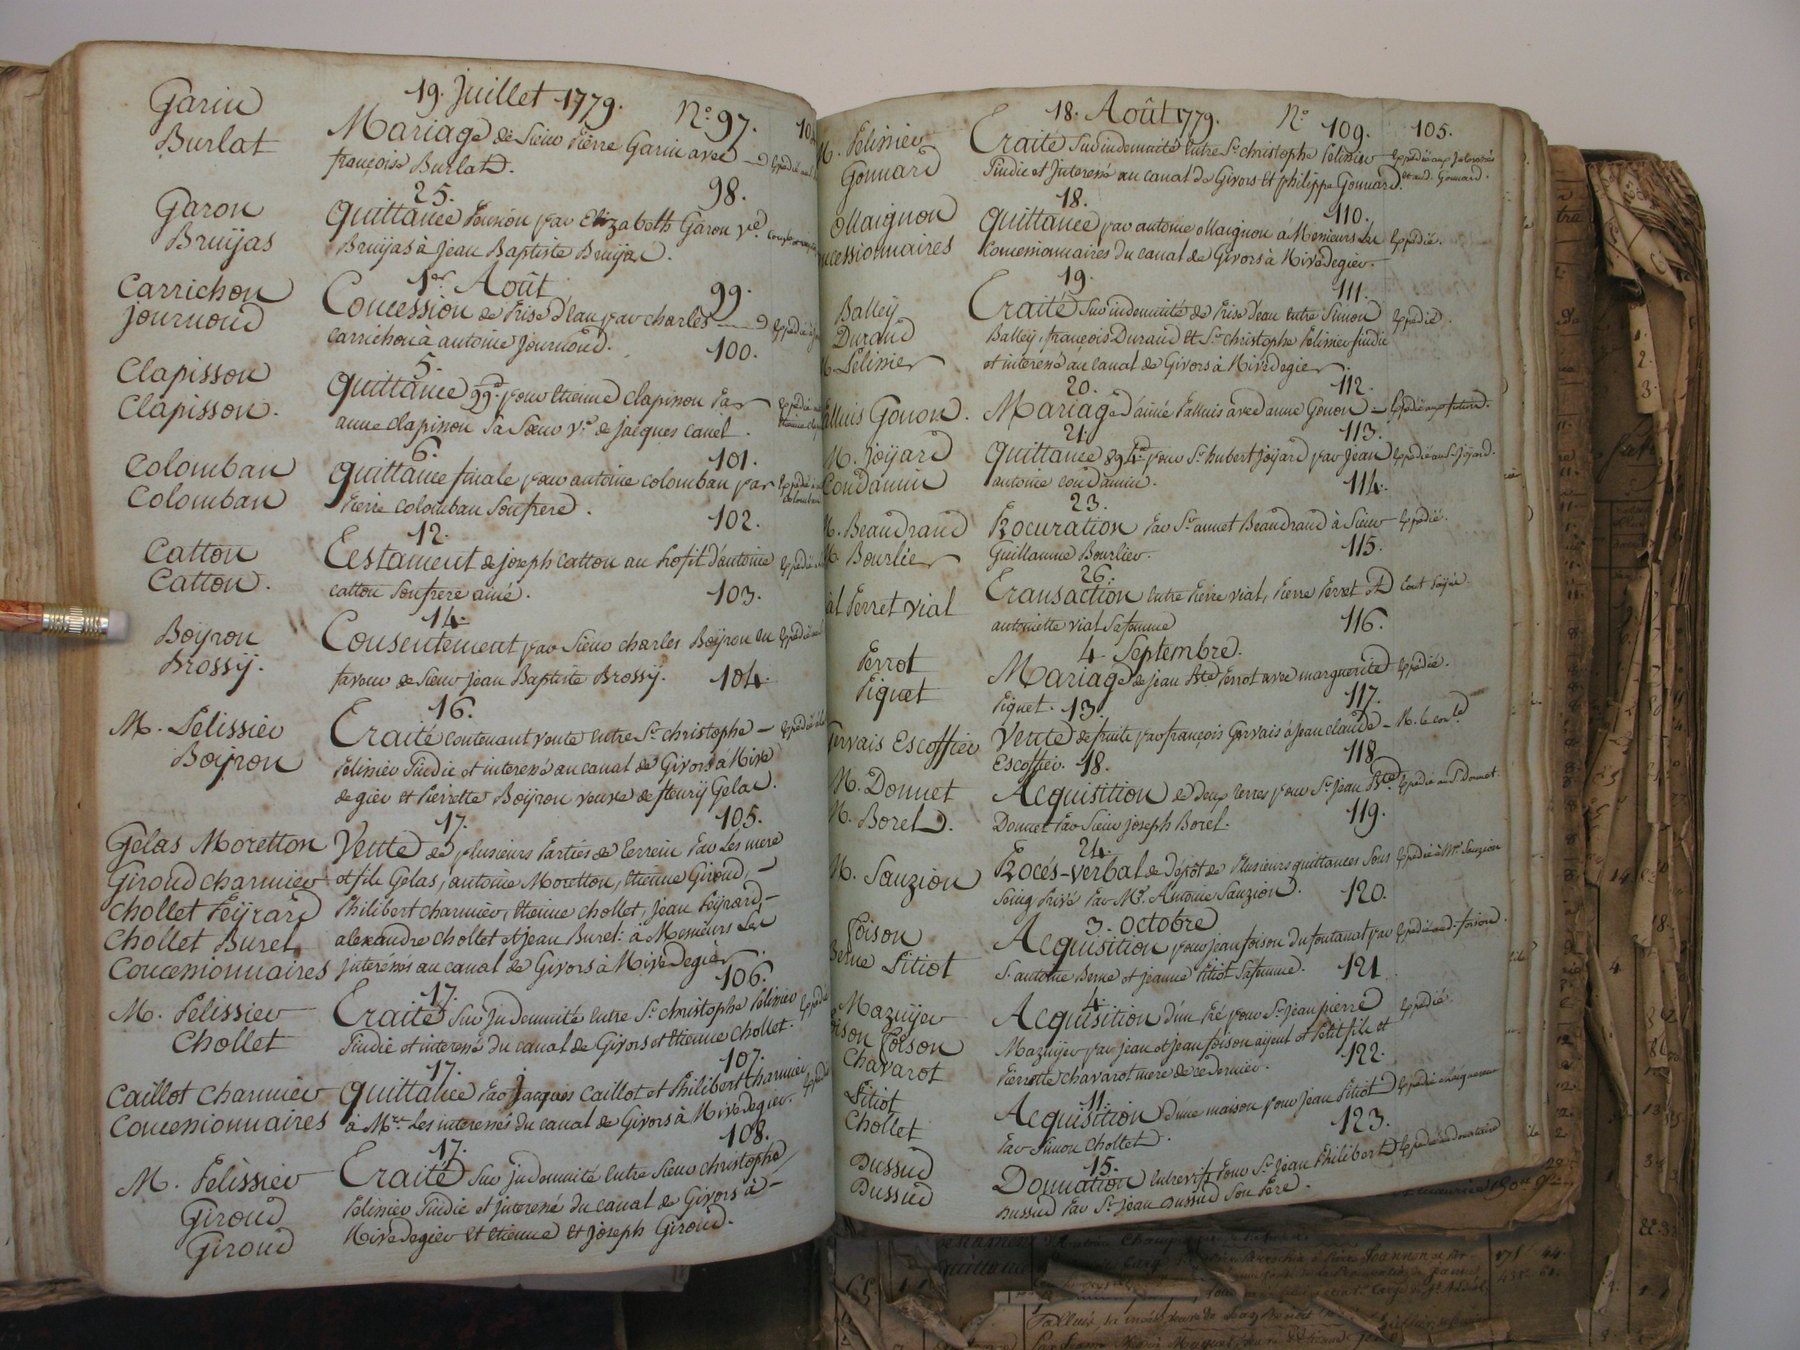 19. Juillet 1779.
Garin
N.º 97.
Burlat
Mariage de Sieur Pierre Garin avec
françoise Burlat.
25.
98.
Garon
Quittance Pension par Elizabeth Garon v.e
Bruÿas
Bruÿas à Jean Baptiste Bruÿas.
1.er Août
99.
Carrichon
Concession de Prise d'Eau par charles
Journoud
Carrichon à antoine Journoud.
5.
100.
Clapisson
Quittance 99.# pour Etienne Clapisson Par
Clapisson.
anne Clapisson Sa Sœur V.e de Jacques Canel.
6.
101.
Colomban
Quittance finale pour antoine Colomban par
Colomban
Pierre Colomban Son frere.
12.
102.
Catton
Testament de joseph Catton au Profit d'antoine
Catton.
catton Son frere ainé.
14.
103.
Boÿron
Consentement par Sieur charles Boÿron en
Brossÿ.
faveur de Sieur jean Baptiste Brossÿ.
16.
104.
M. Pelissier
Traité contenant vente Entre S.r christophe
Boÿron
Pelissier Sindic et interessé au canal de Givors à Rive
de gier et Pierrette Boÿron veuve de fleurÿ Gelas.
17.
105.
Gelas Moretton
Vente de plusieurs Parties de Terrein Par Les mere
Giroud charmier
et fils Gelas, antoine Moretton, Etienne Giroud,
Chollet Peÿrard
Philibert charmier, Etienne chollet, Jean Peÿrard,
Chollet Burel
alexandre chollet et jean Burel: à Messieurs Les
Concessionnaires
Interessés au canal de Givors à Rivedegier.
17.
106.
M. Pelissier
Traité Sur Indemnité Entre S.r christophe Pelissier
Chollet
Sindic et interessé du canal de Givors et Etienne Chollet.
17.
107.
Caillot Charmier
Quittance Par Jacques Caillot et Philibert Charmier
Concessionnaires
à M.rs Les interessés du canal de Givors à Rivedegier.
17.
108.
M. Pelissier
Traité Sur Indemnité Entre Sieur christophe
Giroud
Pelissier Sindic et Interessé du canal de Givors à
Giroud
Rivedegier et Etienne Et joseph Giroud.
18. Août 1779.
N.º 109.
105.
M. Pelissier
Traité Sur indemnité Entre S.r christophe Pelissier
Expedié aux Interessés
Gonnard
Sindic et Interessé au canal de Givors Et philippe Gonnard.
et aud. Gonnard.
18.
110.
Maignon
Quittance par antoine Maignon à Messieurs Les
Expedié.
Concessionnaires du canal de Givors à Rivedegier.
19.
111.
Balleÿ
Traité Sur indemnité de Prise d'eau Entre Simon
Expedié.
Durand
Balleÿ, françois Durand Et S.r christophe Pelissier Sindic
Pelissier
et interessé au canal de Givors à Rivedegier.
20.
112.
Palluis Gonon.
Mariage d'aimé Palluis avec anne Gonon
21.
113.
M. Joÿard
Quittance 894.# pour S.r hubert Joÿard par Jean
Expedié au S.r Joÿard.
Condamin
antoine condamin.
23.
114.
M. Beaudrand
Procuration Par S.r annet Beaudrand à Sieur
Expedié.
M. Bourlier
Guillaume Bourlier.
26.
115.
Perret Vial
Transaction Entre Pierre Vial, Pierre Perret Et
antoinette Vial Sa femme
116.
4 Septembre.
Perrot
Mariage de jean B.te Perrot avec marguerite
Expedié.
Piquet
Piquet.
13.
117.
Gervais Escoffier
Vente de fruits par françois Gervais à Jean claude
Escoffier.
18.
118
M. Donnet
Acquisition de deux Terres pour S.r Jean B.te
Expedié au S.r Donnet.
M. Borel.
Donnet Par Sieur joseph Borel.
24.
119.
M. Sauzion
Procés-verbal de Dépôt de Plusieurs quittances Sous
Expedié à M.r Sauzion
Seing Privé Par M.e Antoine Sauzion.
120.
3. Octobre
Foison
Acquisition pour jean foison du fontanat par
Expedié aud. foison.
Berne Pitiot
S. antoine Berne et jeanne Pitiot Sa femme.
4.
121
Mazuÿer
Acquisition d'un Pré pour S.r Jean pierre
Expedié
Foison
Mazuÿer par jean et jean foison aÿeul et Petit fils et
Chavarot
Pierrette chavarot mere de ce dernier.
122.
11.
Pitiot
Acquisition d'une maison pour Jean Pitiot
Chollet
Par Simon Chollet.
15.
123.
Dussud
Donnation Entrevifs Pour S.r Jean Philibert
Expedié au donataire
Dussud
Dussud Par S.r Jean Dussud Son Pere.